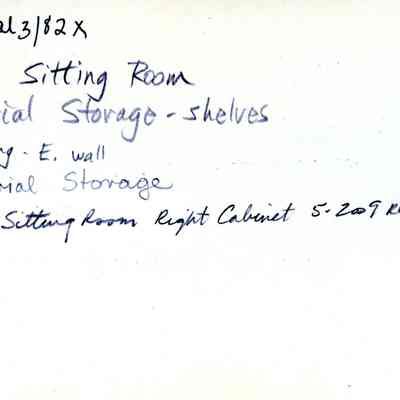 al 3/82 x
Sitting Room
ial Storage - shelves
g - E. wall
rial Storage
Sitting Room Right Cabinet 5-2009 R